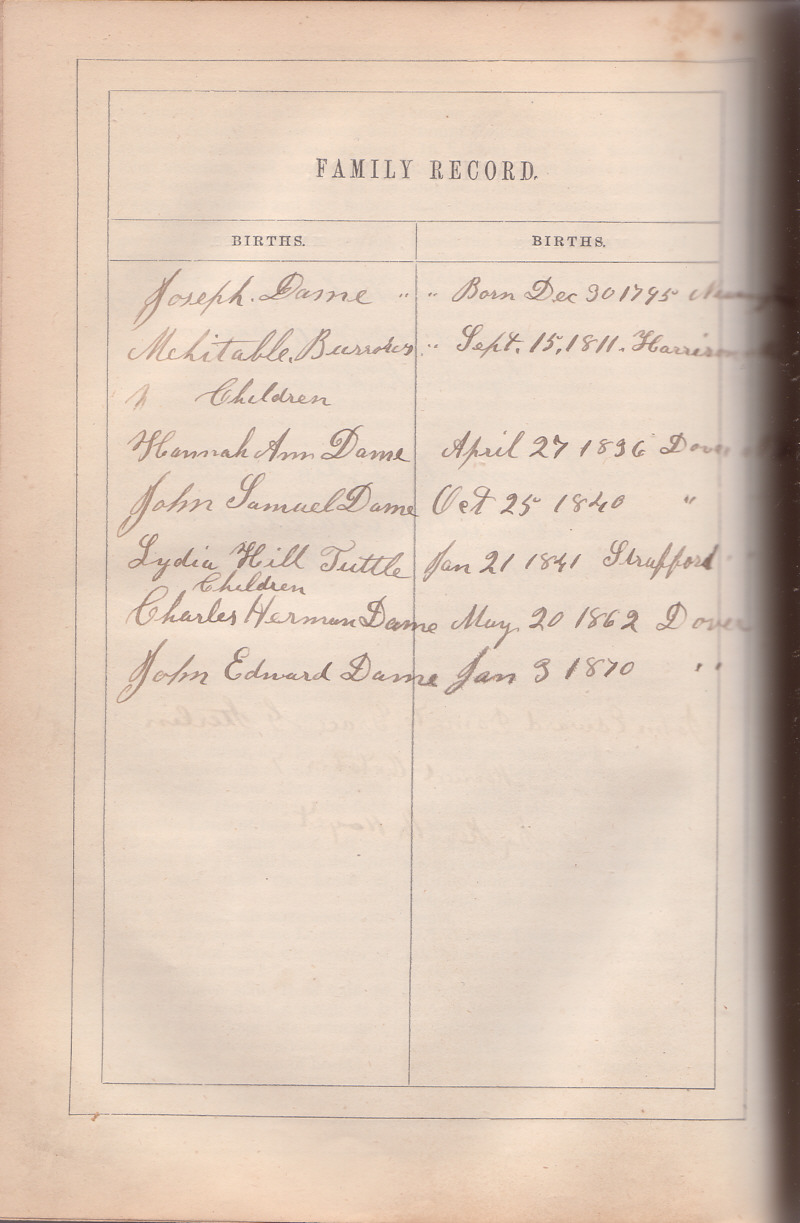 FAMILY RECORD.
BIRTHS. BIRTHS.
Joseph. Dame " " Born Dec 30 1795
Mehitable. Burrows " Sept. 15, 1811. Harrison
Children
Hannah Ann Dame April 27 1836 Dover
John Samuel Dame Oct 25 1840 "
Lydia Hill Tuttle Jan 21 1841 Strafford
Children
Charles Herman Dame May. 20 1862 Dover
John Edward Dame Jan 3 1870 "